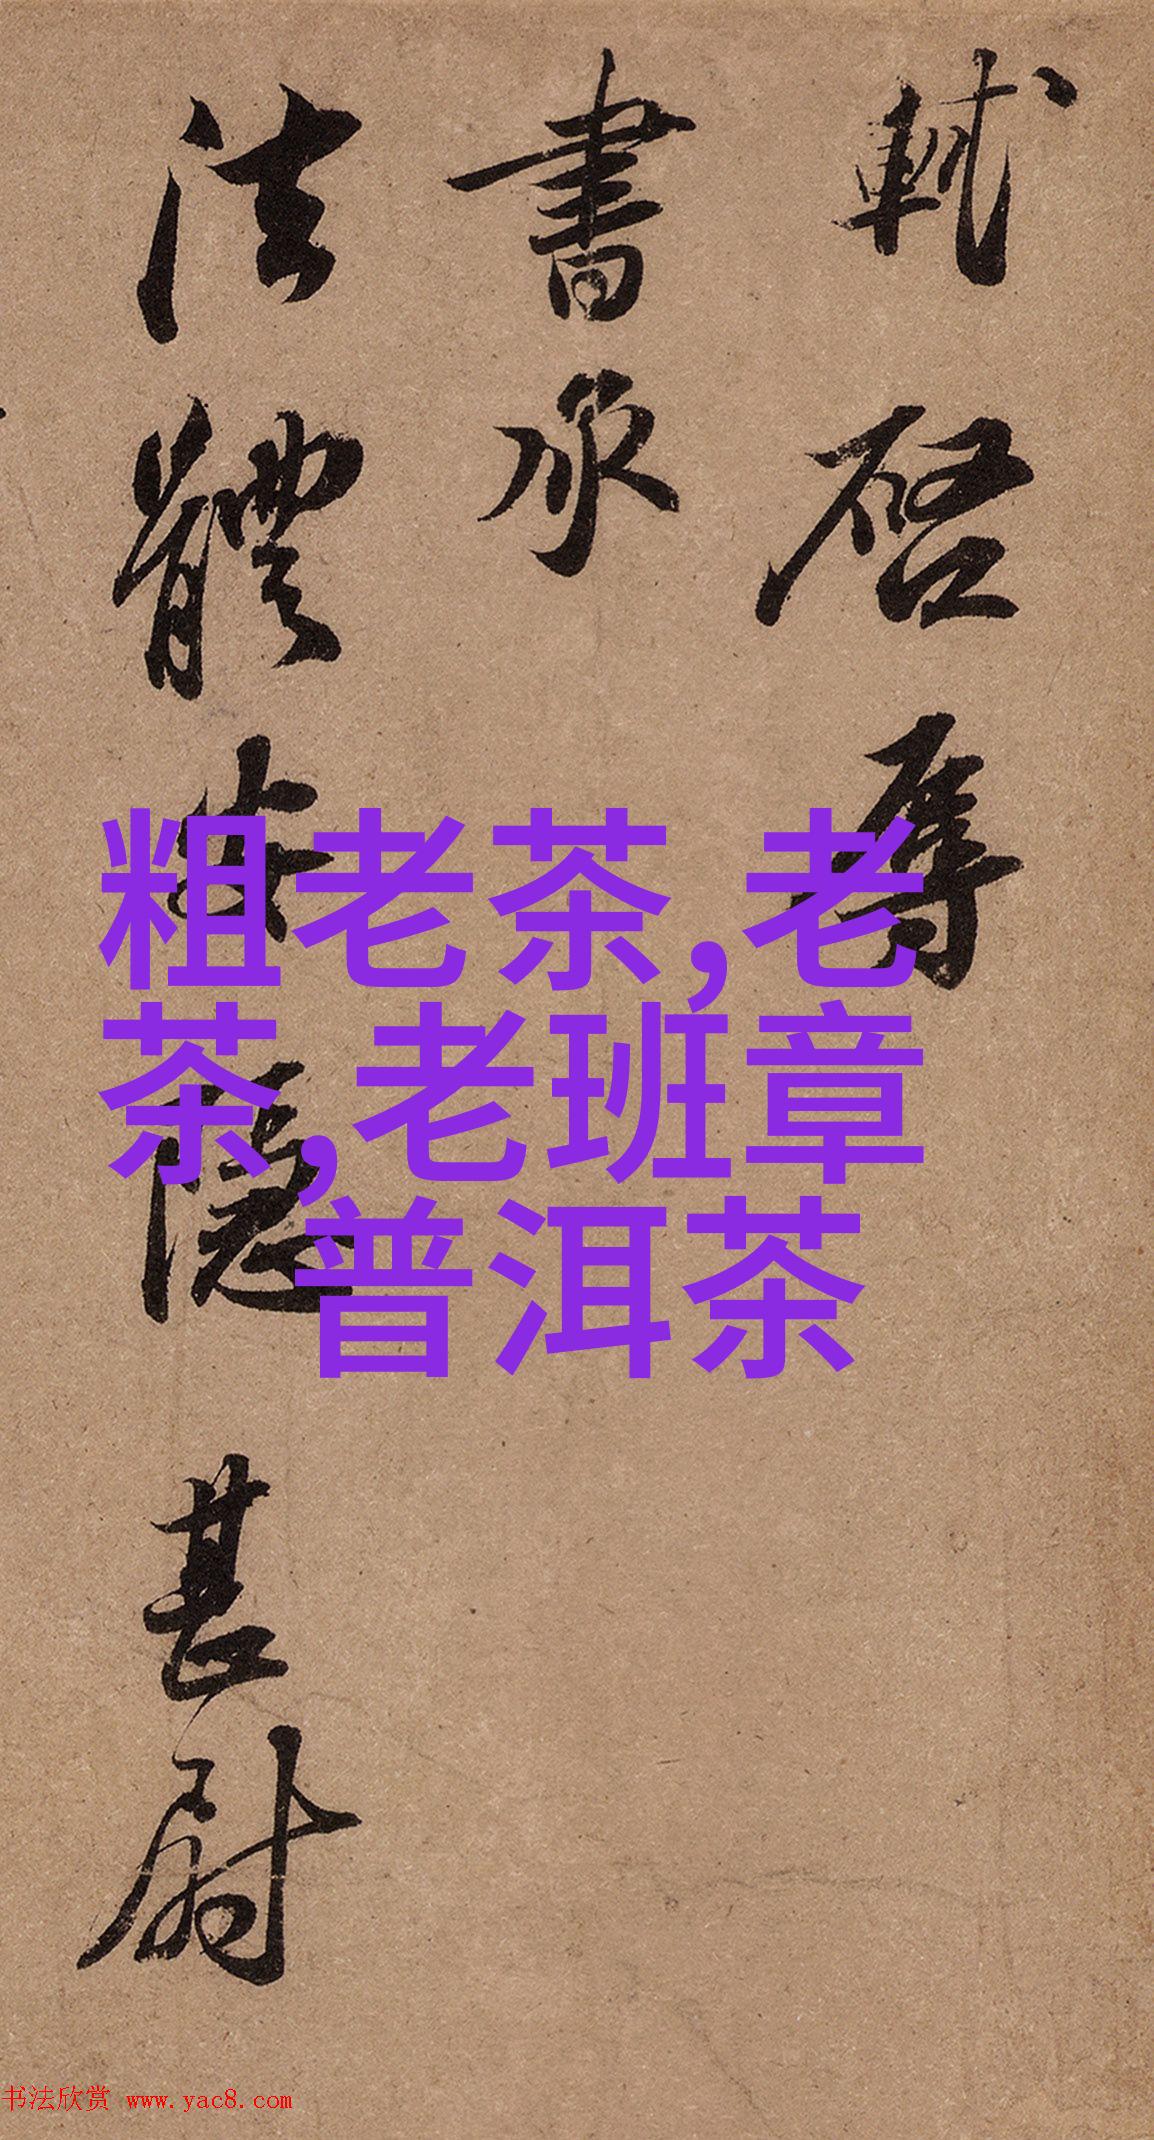 軾啓辱
書承
法體安隱甚慰
粗老茶,老
茶,老班章
普洱茶
书法欣赏 www.yac8.com